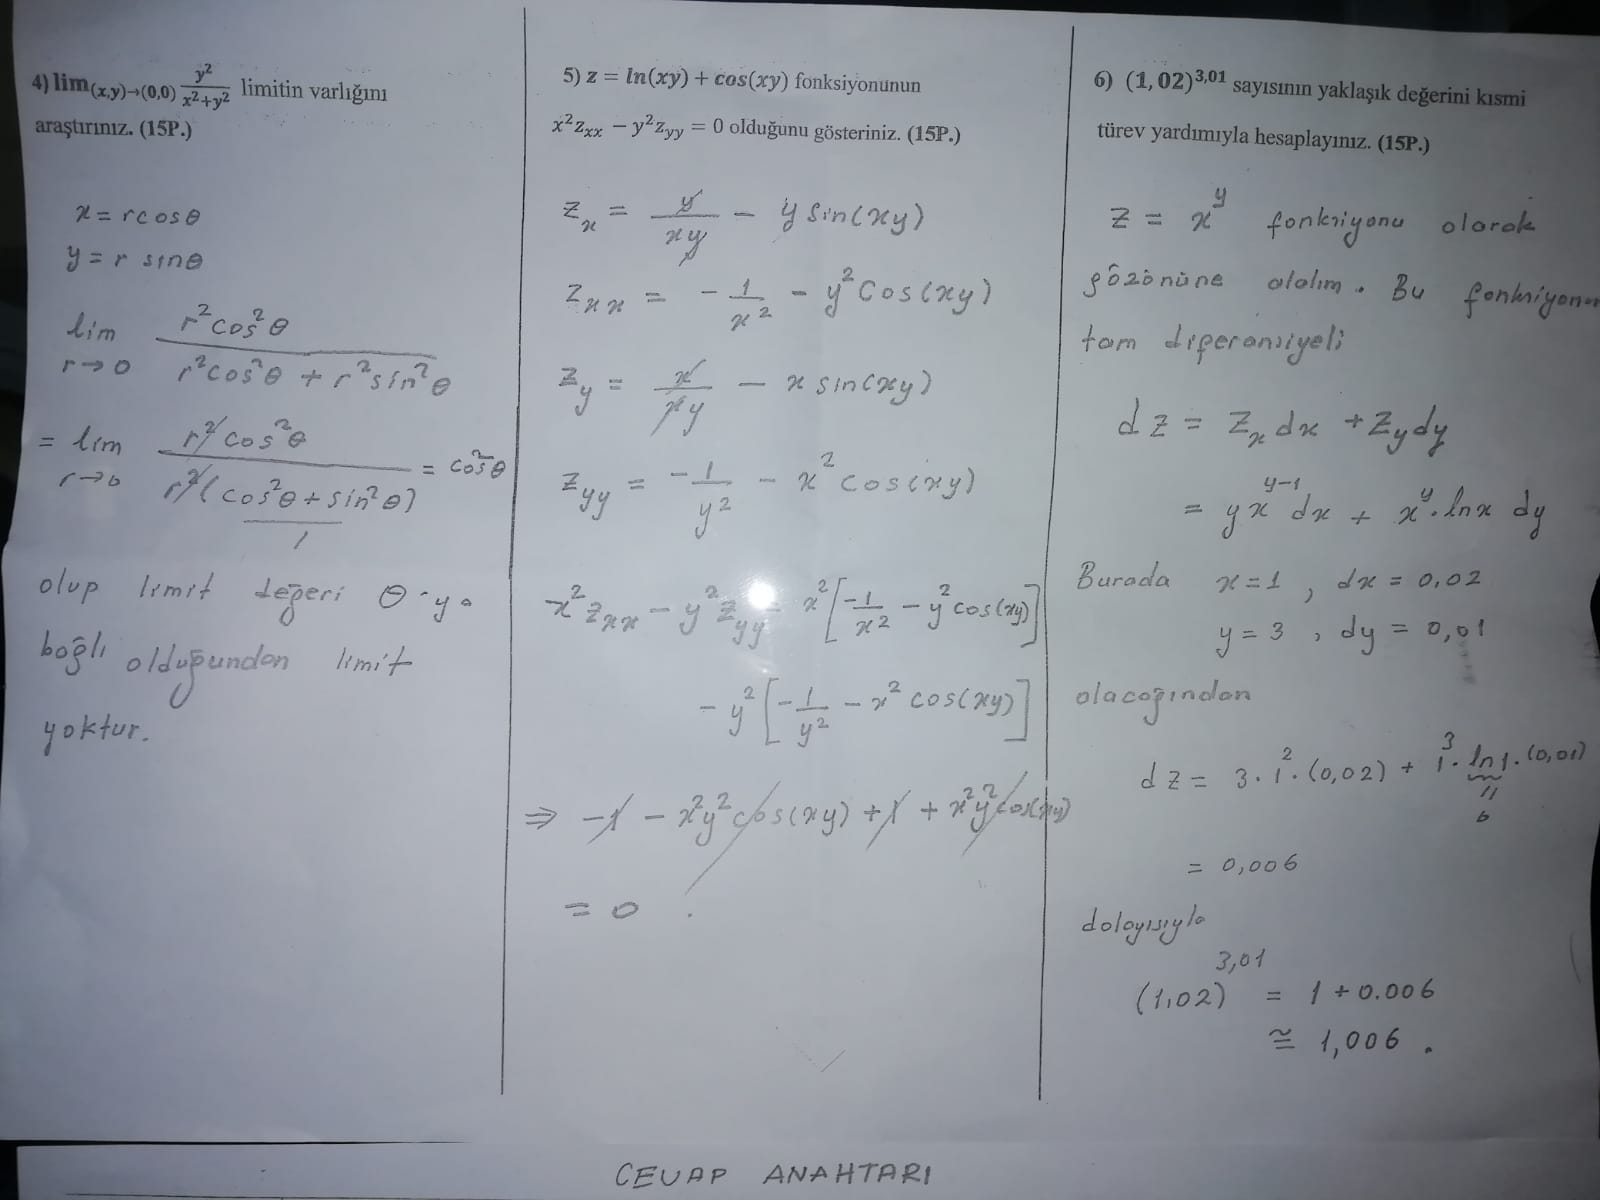 4) lim(x,y)→(0,0) y²/(x²+y²) limitin varlığını
araştırınız. (15P.)
x = rcosθ
y = r sinθ
lim r→0 r²cos²θ / (r²cos²θ + r²sin²θ)
= lim r→0 r²cos²θ / (r²(cos²θ + sin²θ)) = cos²θ
1
olup limit değeri θ'ya
bağlı olduğundan limit
yoktur.
5) z = ln(xy) + cos(xy) fonksiyonunun
x²zxx − y²zyy = 0 olduğunu gösteriniz. (15P.)
zx = y/(xy) − y sin(xy)
zxx = −1/x² − y²cos(xy)
zy = x/(xy) − x sin(xy)
zyy = −1/y² − x²cos(xy)
x²zxx − y²zyy = x²[−1/x² − y²cos(xy)]
− y²[−1/y² − x²cos(xy)]
⇒ −1 − x²y²cos(xy) + 1 + x²y²cos(xy)
= 0 .
6) (1,02)^3,01 sayısının yaklaşık değerini kısmi
türev yardımıyla hesaplayınız. (15P.)
z = x^y fonksiyonu olarak
gözönüne alalım. Bu fonksiyonun
tam diferansiyeli
dz = zx dx + zy dy
= yx^(y−1) dx + x^y . lnx dy
Burada x = 1 , dx = 0,02
y = 3 , dy = 0,01
olacağından
dz = 3.1².(0,02) + 1³.ln1.(0,01)
= 0
= 0,006
dolayısıyla
(1,02)^3,01 = 1 + 0.006
≅ 1,006 .
CEVAP ANAHTARI